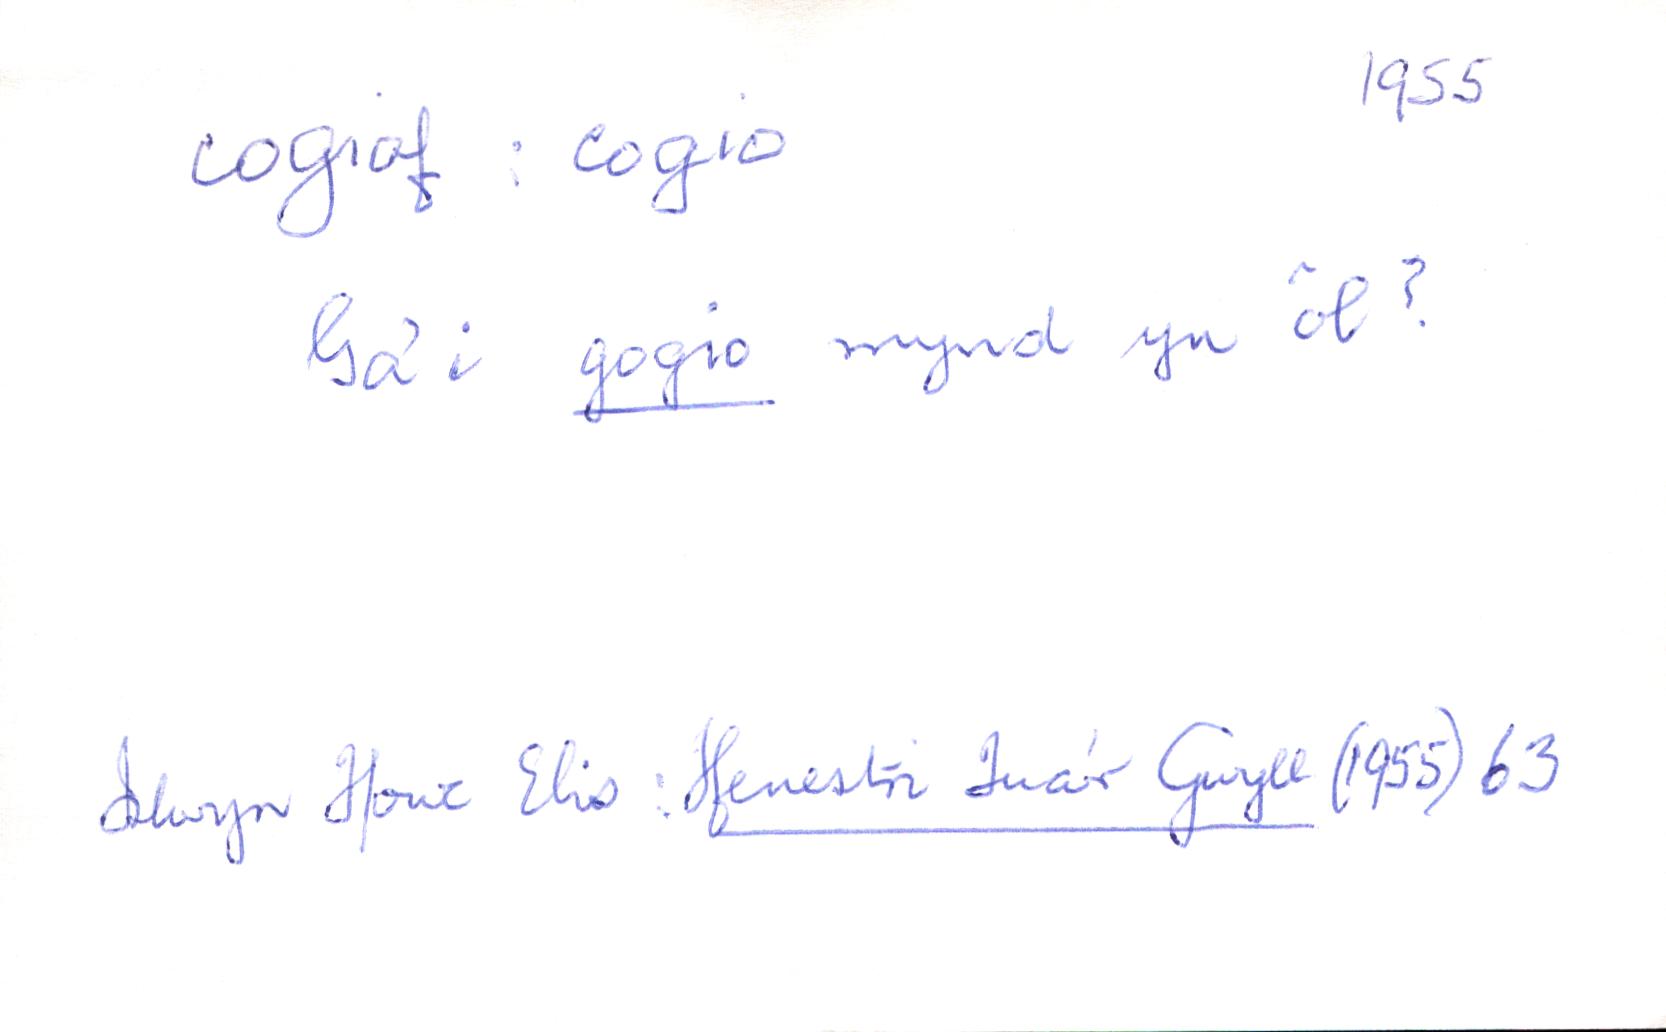 1955
cogiaf : cogio
Ga' i gogio mynd yn ôl?
Islwyn Ffowc Elis : Ffenestri Tua'r Gwyll (1955) 63